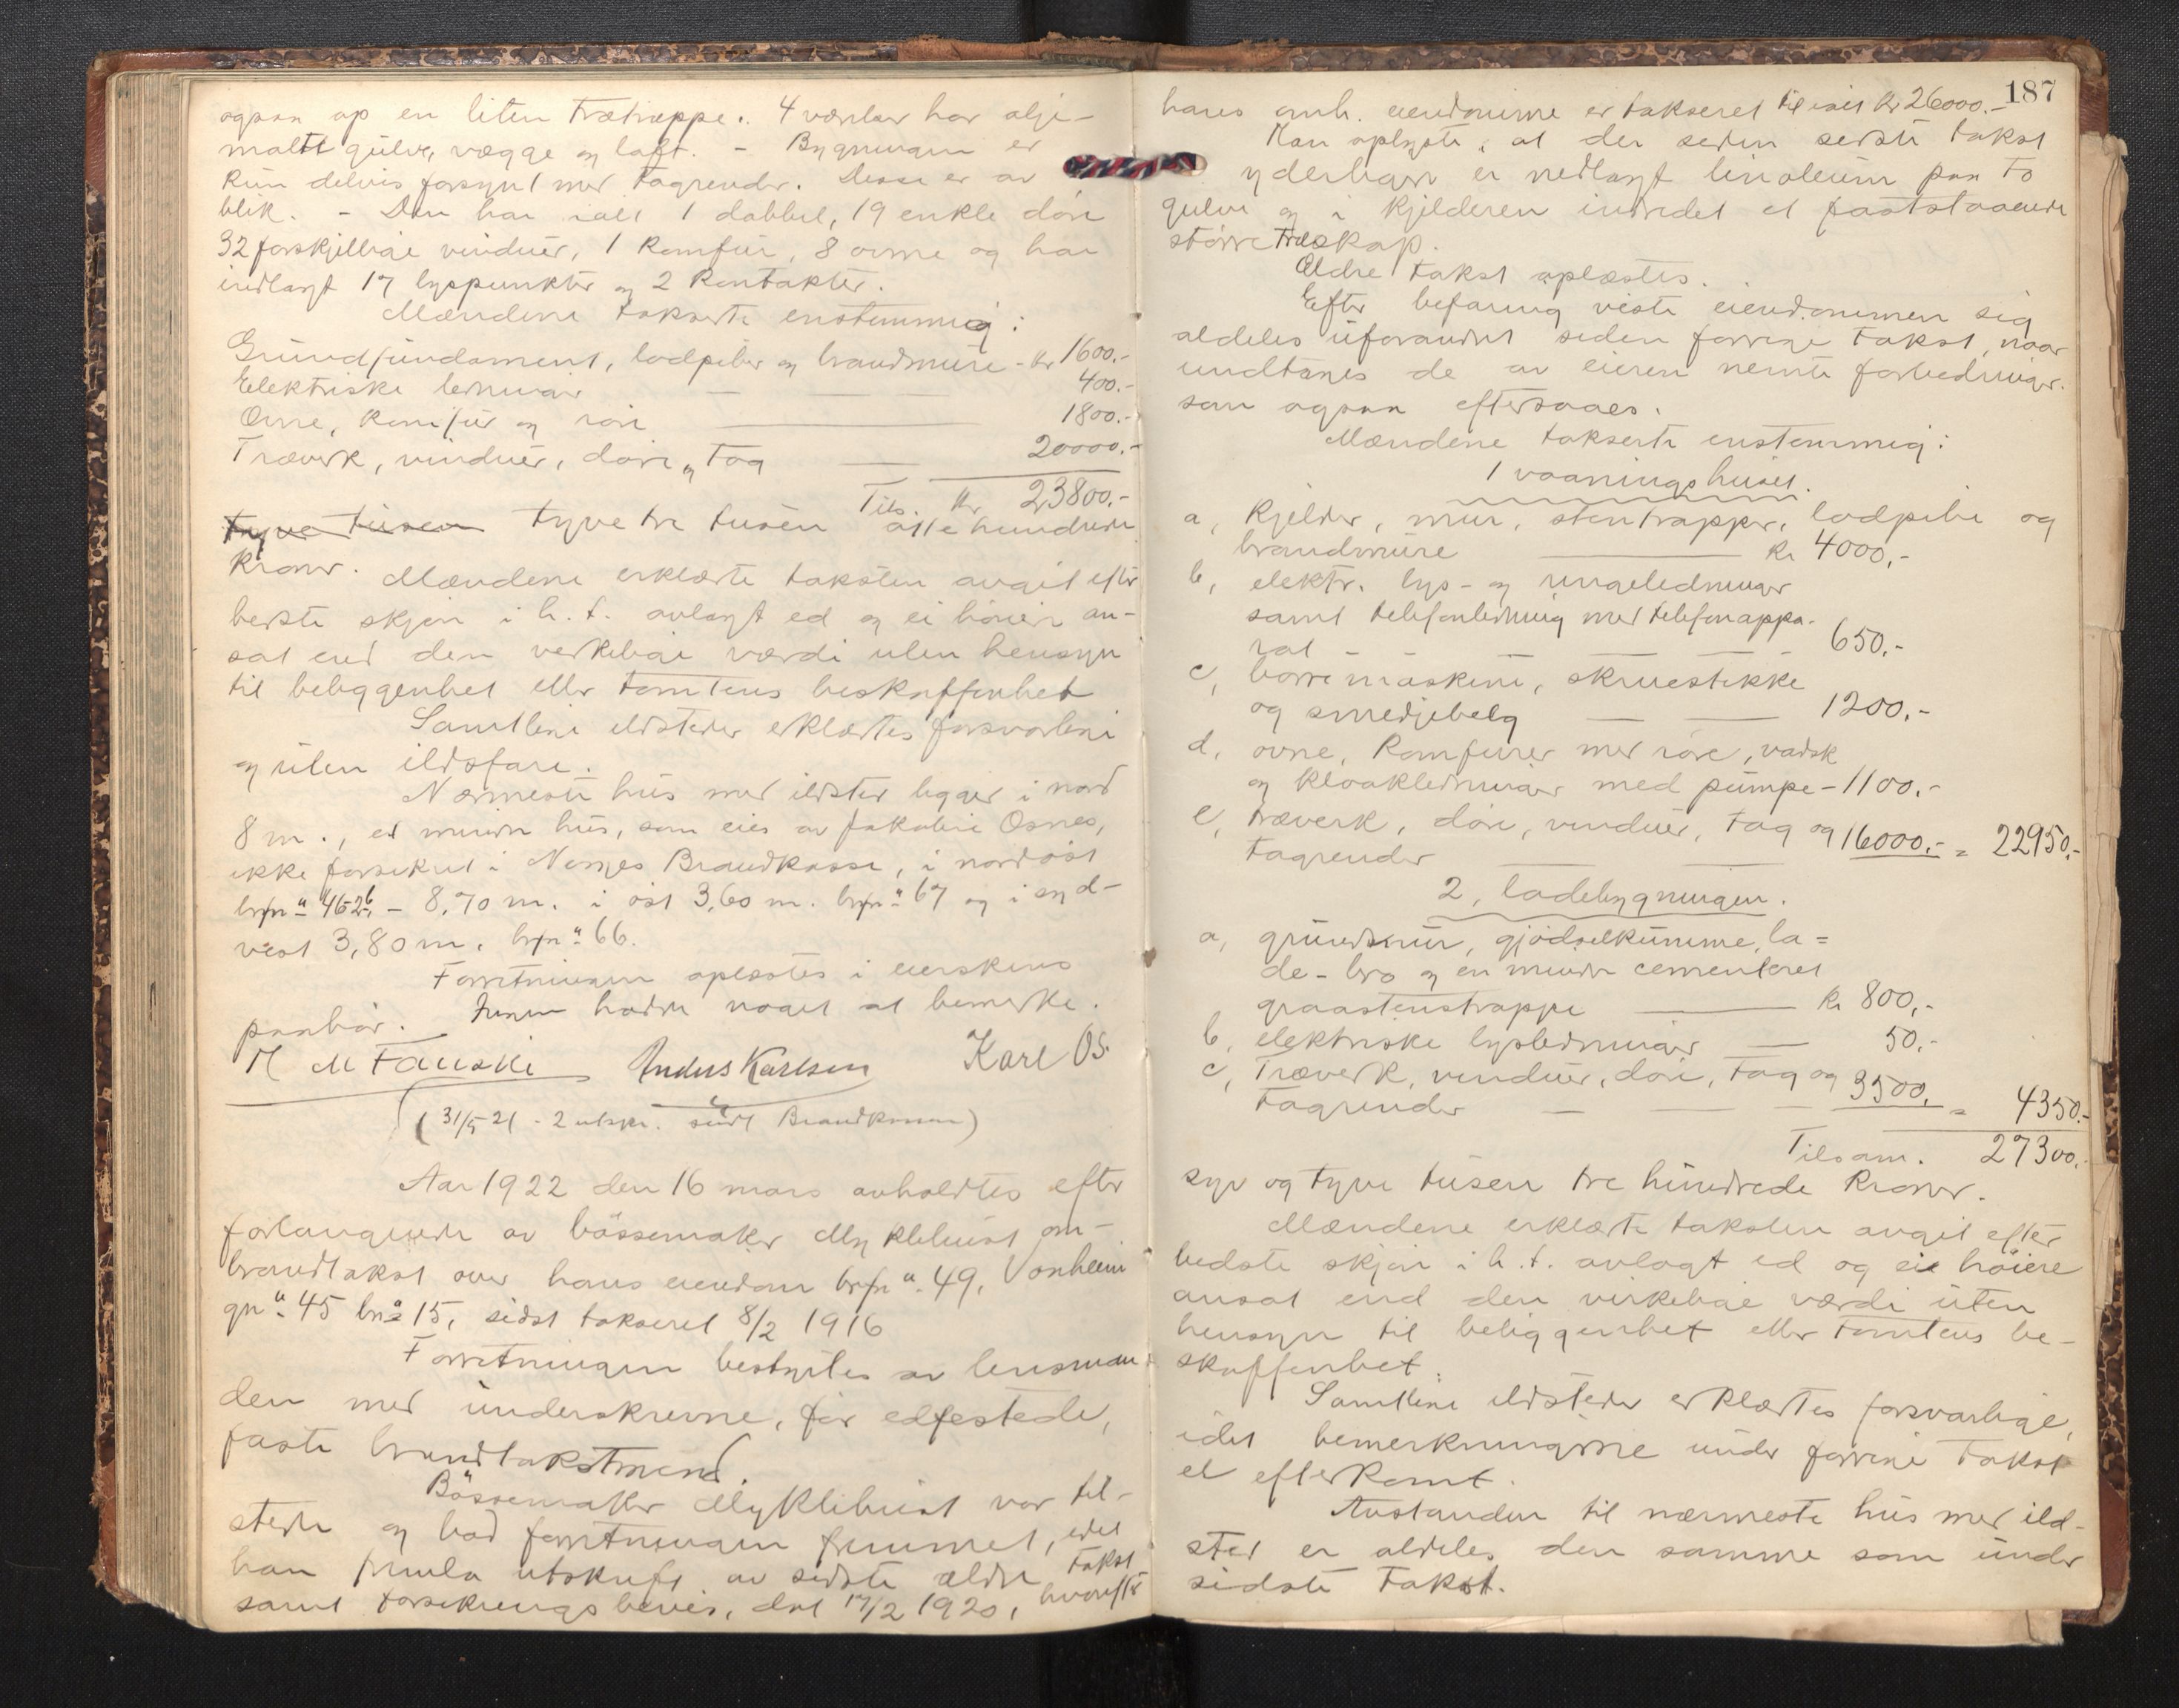 ogsaa op en liten trætrappe. 4 værelser har olje-
malte gulve, vægge og loft. - Bygningen er
kun delvis forsynt med tagrender. Disse er av
blik. - Den har ialt 1 dobbel, 19 enkle döre
32 forskjellige vinduer, 1 komfur, 8 ovne og har
indlagt 17 lyspunkter og 2 kontakter.
Mændene takserte enstemmig:
Grundfundament, lodpiber og brandmure - kr 1600.-
Elektriske ledninger — 400.-
Ovne, komfur og rör — 1800.-
Træverk, vinduer, döre og tag — 20000.-
Tils. kr 23800.-
tyve tusen tyve tre tusen otte hundrede
kroner. Mændene erklærte taksten avgit efter
bedste skjön i h. t. avlagt ed og ei höiere an-
sat end den verkelige værdi uten hensyn
til beliggenhet eller tomtens beskaffenhet
Samtlige ildsteder erklærtes forsvarlige
og uten ildsfare.
Nærmeste hus med ildsted ligger i nord
8 m., et mindre hus, som eies av Jakobine Osnes,
ikke forsikret i Norges Brandkasse, i nordöst
brfn° 462b, - 8,70 m. i öst 3,60 m. brfn° 67 og i syd-
vest 3,80 m. brfn° 66.
Forretningen oplæstes i eierskens
paahör. Ingen hadde noget at bemerke.
M M Fauske Anders Karlsen Karl Os.
(31/5 21 - 2 utskr. sendt Brandkassen)
Aar 1922 den 16 mars avholdtes efter
forlangende av bössemaker Myklebust om-
brandtakst over hans eiendom brfn° 49, Vonheim
gn° 45 bn° 15, sidst taksert 8/2 1916
Forretningen bestyrtes av lensman
den med underskrevne, för edfestede,
faste brandtakstmend.
Bössemaker Myklebust var til-
stede og bad forretningen fremmet, idet
han fremla utskrift av sidste ældre takst
samt forsikringsbevis, dat 17/2 1920, hvorefter
187
hans omh. eiendomme er taksert til ialt kr 26000.-
Han oplyste, at der siden sidste takst
yderligere er nedlagt linoleum paa to
gulve og i kjelderen indredet et faststaaende
större træskap.
Eldre takst oplæstes.
Efter befaring viste eiendommen sig
aldeles uforandret siden forrige takst, naar
undtages de av eieren nemte forbedringer.
som ogsaa eftersaaes.
Mændene takserte enstemmig:
1 vaaningshuset.
a, kjelder, mur, stentrapper, lodpibe og
brandmure — kr 4000,-
b, elektr. lys- og ringeledninger
samt telefonledning med telefonappa-
rat — 650,-
c, borremaskine, skruestikke
og smedjebelg — 1200,-
d, ovne, komfurer med röre, vadsk
og kloakledninger med pumpe - 1100,-
e, træverk, döre, vinduer, tag og 16000.- = 22950,-
tagrender —
2, ladebygningen.
a, grundmur, gjödselkumme, la=
de-bro og en mindre cementeret
graastenstrappe — kr 800,-
b, elektriske lysledninger — 50,-
c, Træverk, vinduer, döre, tag og 3500. = 4350.-
tagrender —
Tilsam. 27300,-
syv og tyve tusen tre hundrede kroner.
Mændene erklærte taksten avgit efter
bedste skjön i h. t. avlagt ed og ei höiere
ansat end den virkelige værdi uten
hensyn til beliggenhet eller tomtens be-
skaffenhet.
Samtlige ildsteder erklærtes forsvarlige,
idet bemerkningerne under forrige takst
er efterkomt.
Avstanden til nærmeste hus med ild-
sted er aldeles den samme som under
sidste takst.